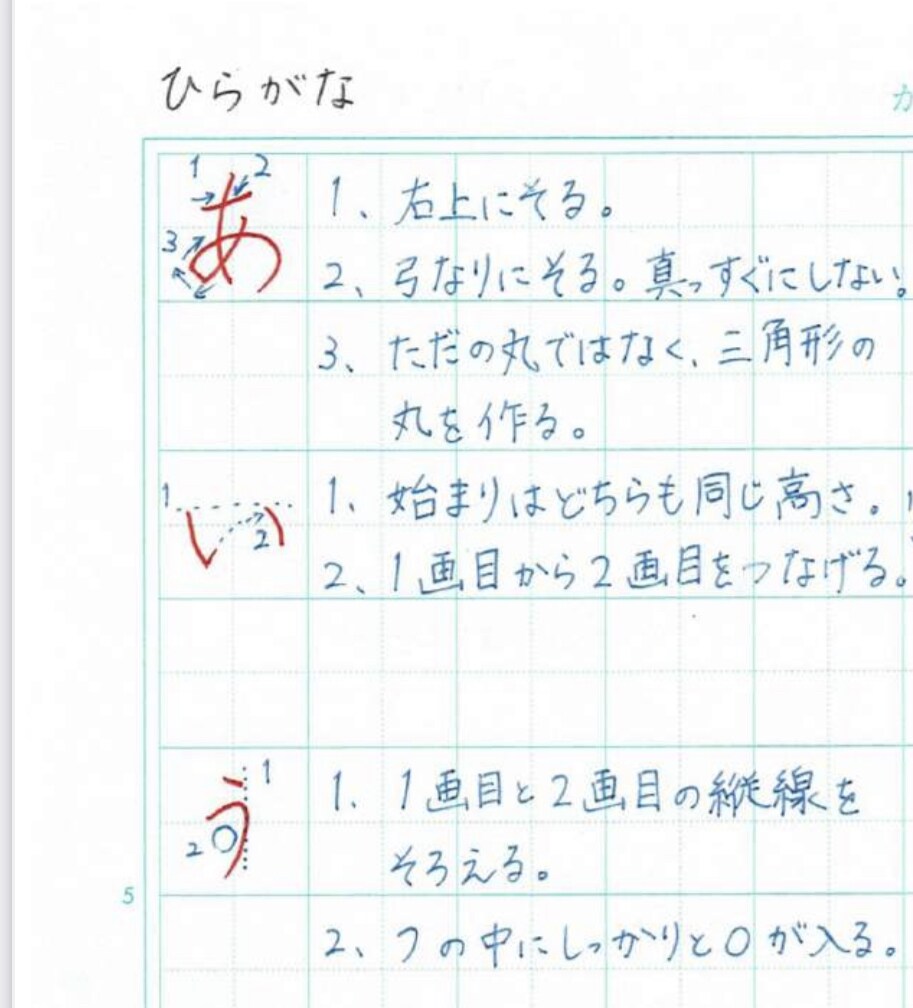 ひらがな
か
あ 1 2 3
1、右上にそる。
2、弓なりにそる。真っすぐにしない。
3、ただの丸ではなく、三角形の
丸を作る。
い 1 2
1、始まりはどちらも同じ高さ。
2、1画目から2画目をつなげる。
う 1 2
1、1画目と2画目の縦線を
そろえる。
5
2、フの中にしっかりと○が入る。